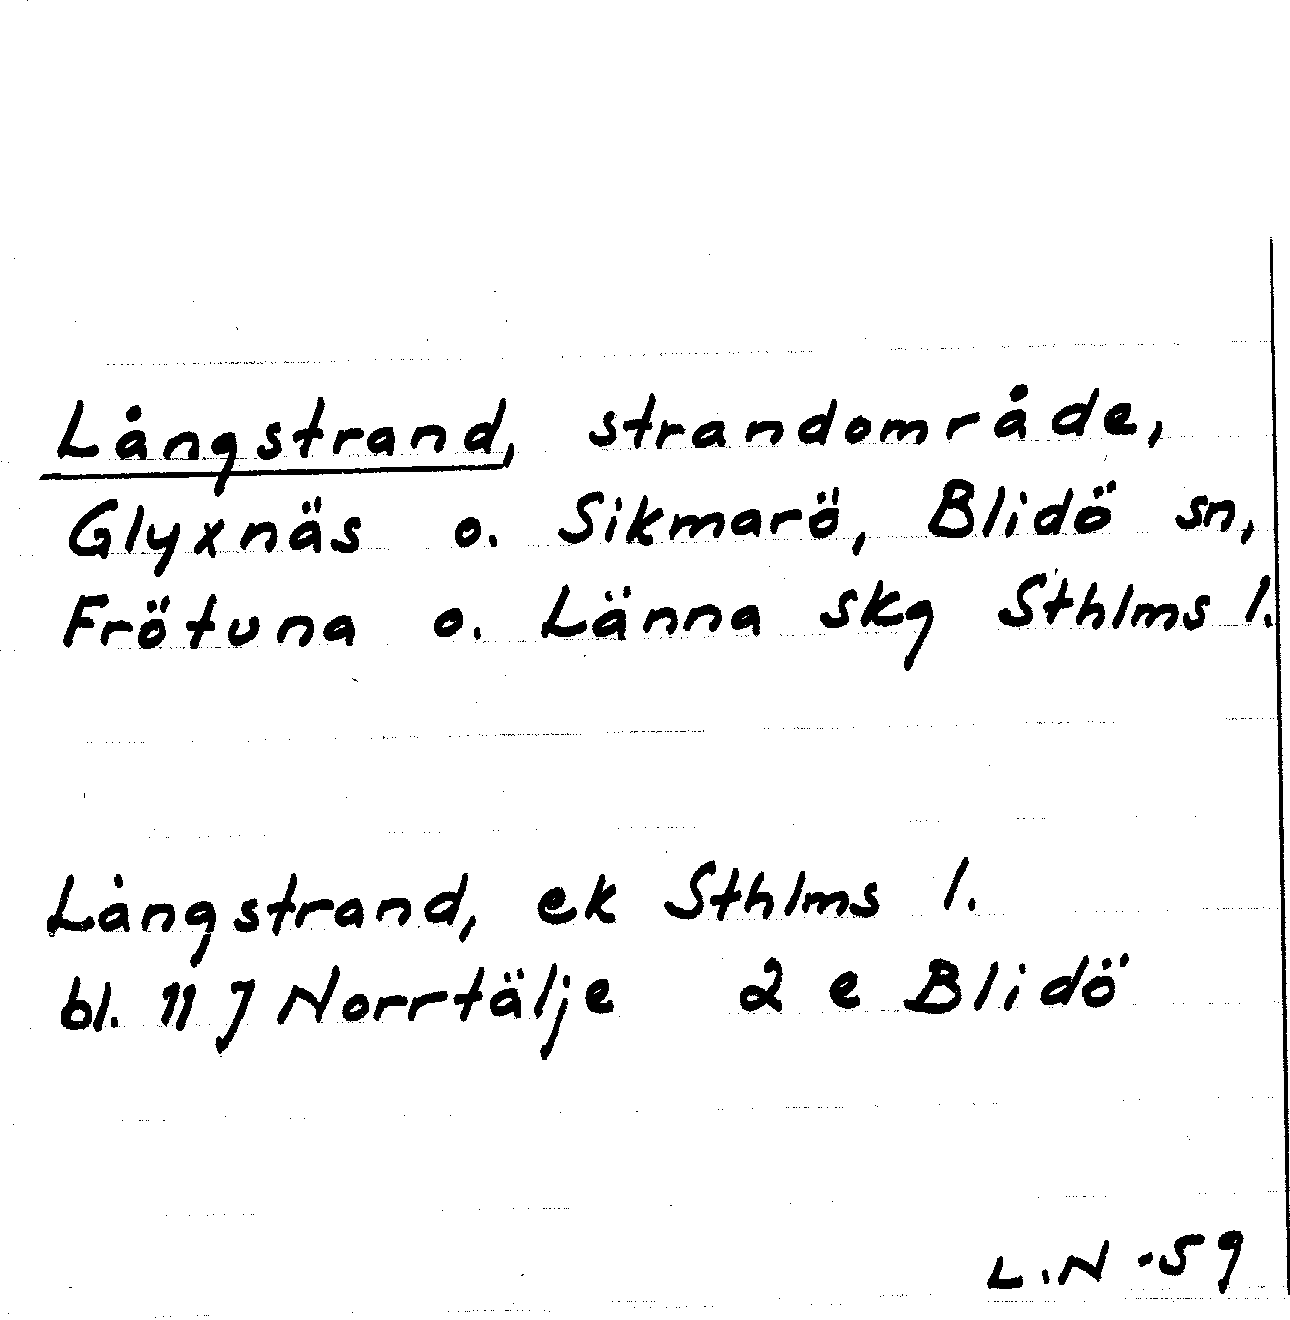 Långstrand, strandområde,
Glyxnäs o. Sikmarö, Blidö sn,
Frötuna o. Länna skg Sthlms l.
Långstrand, ek Sthlms l.
bl. 11 J Norrtälje 2 e Blidö
L.N -59